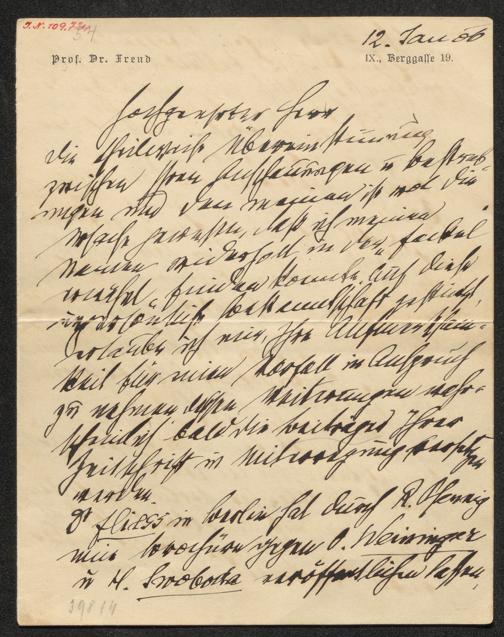 I.N. 109.7
12. Jan 06
Prof. Dr. Freud
IX., Berggasse 19.
Hochgeehrter Herr
Die theilweise Übereinstimmung
zwischen Ihren Anschauungen u Bestreb
ungen und den meinen ist wol die
Ursache gewesen, daß ich meinen
Namen widerholt in der „Fackel
finden konnte. Auf diese
unpersönliche Bekanntschaft gestützt,
erlaube ich mir, Ihre Aufmerksam-
keit für einen Vorfall in Anspruch
zu nehmen, dessen Weiterungen wahr-
scheinlich bald die Beiträger Ihrer
Zeitschrift in Mitbewegung versetzen
werden
Dr Fliess in Berlin hat durch R. Pfennig
eine Brochüre gegen O. Weininger
u H. Swoboda veröffentlichen lassen,